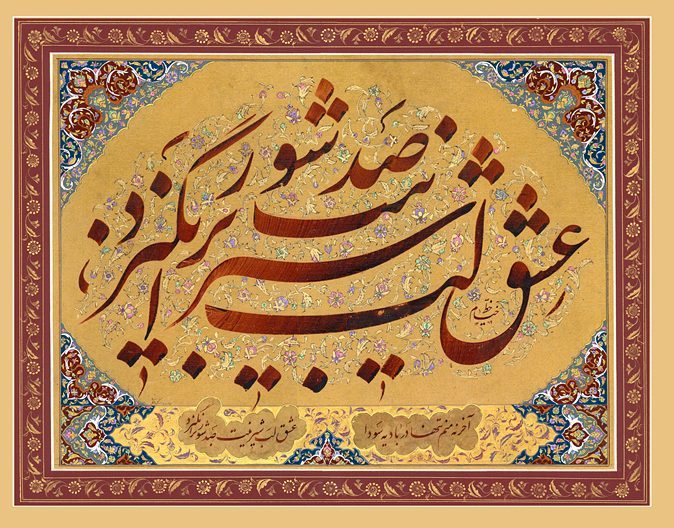 عشق لب شیرینت صد شور برانگیزد
آخر نه منم تنها در بادیه سودا
عشق لب شیرینت صد شور برانگیزد